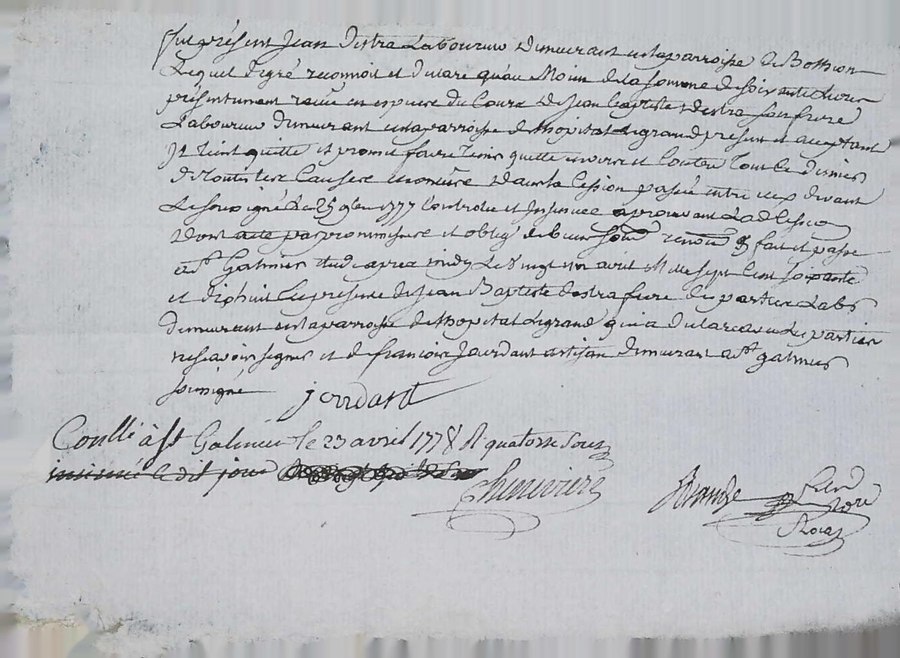 fut présent Jean Destra Laboureur demeurant en la parroisse de Bothéon
Lequel de gré reconnoit et declare qu'au Moien de la somme de soixante Livres
présentement recüe en espece du Cours de Jean baptiste Destra son frere
Laboureur demeurant en la parroisse de Lhopital Legrand présent et acceptant
Il tient quitte et promet faire tenir quitte envers et Contre tous le
de toutes les Causes en la Cession passée entre eux devant
Le soussigné Le 25 9bre 1777 Controllé et Insinuée aprouvant Lad Cession
Dont acte par promesses et oblig de biens renon fait et passé
a St Galmier Etude apres midy Le vingt un avril Mille sept Cent soixante
et dix huit En présence de Jean Baptiste Destra frere des parties Lab
demeurant en la parroisse de Lhopital Legrand qui a declaré avec Les parties
ne sçavoir signer et de françois Jourdant artisan demeurant a St galmier
soussigné jordant
Conllé à St Galmier le 23 avril 1778 R quatorze sous
insinué le dit jour
Chenevier